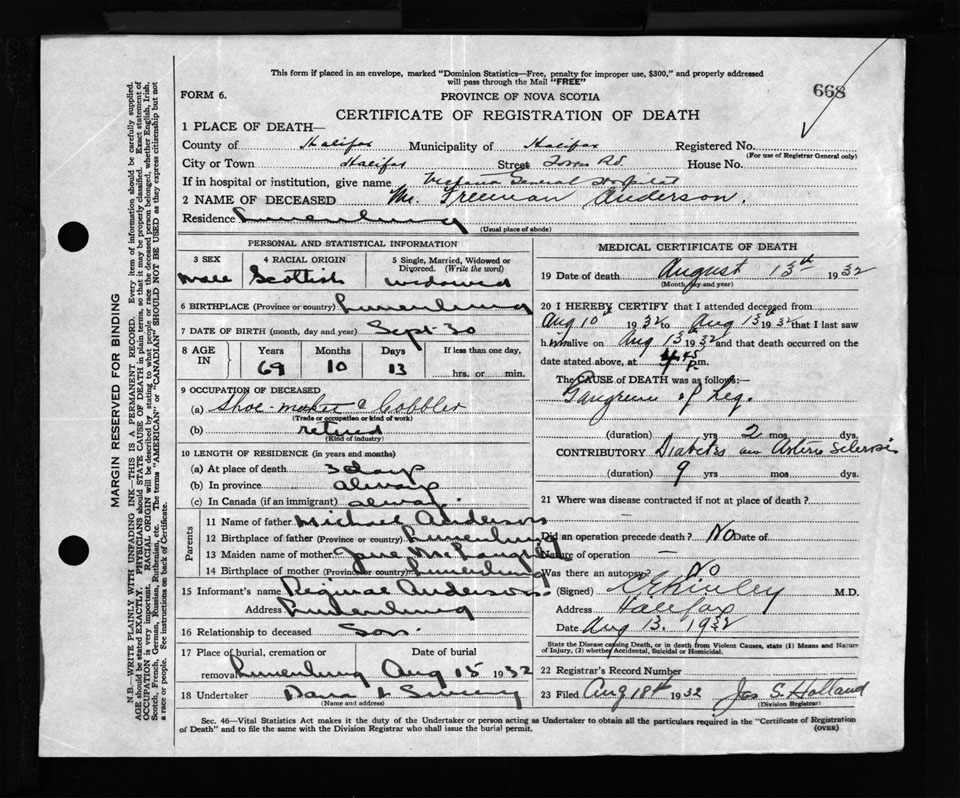 This form if placed in an envelope, marked "Dominion Statistics—Free, penalty for improper use, $300," and properly addressed
will pass through the Mail "FREE"
668
FORM 6.
PROVINCE OF NOVA SCOTIA
CERTIFICATE OF REGISTRATION OF DEATH
1 PLACE OF DEATH—
County of Halifax Municipality of Halifax Registered No.
(For use of Registrar General only)
City or Town Halifax Street Tower Rd. House No.
If in hospital or institution, give name Victoria General Hospital
2 NAME OF DECEASED Mr. Freeman Anderson.
Residence Lunenburg
(Usual place of abode)
PERSONAL AND STATISTICAL INFORMATION
3 SEX 4 RACIAL ORIGIN 5 Single, Married, Widowed or Divorced. (Write the word)
Male Scottish widowed
6 BIRTHPLACE (Province or country) Lunenburg
7 DATE OF BIRTH (month, day and year) Sept 30
8 AGE IN Years Months Days If less than one day,
69 10 13 hrs. or min.
9 OCCUPATION OF DECEASED
(a) Shoe-maker & Cobbler
(Trade or occupation or kind of work)
(b) retired
(Kind of industry)
10 LENGTH OF RESIDENCE (in years and months)
(a) At place of death 3 days
(b) In province always
(c) In Canada (if an immigrant) always
Parents
11 Name of father Michael Anderson
12 Birthplace of father (Province or country) Lunenburg
13 Maiden name of mother Jane
14 Birthplace of mother (Province or country) Lunenburg
15 Informant's name Reginae Anderson
Address Lunenburg
16 Relationship to deceased Son.
17 Place of burial, cremation or removal Date of burial
Lunenburg Aug 15 1932
18 Undertaker
(Name and address)
MEDICAL CERTIFICATE OF DEATH
19 Date of death August 13th 1932
(Month, day and year)
20 I HEREBY CERTIFY that I attended deceased from
Aug 10 1932 to Aug 13th 1932 that I last saw
him alive on Aug 13th 1932 and that death occurred on the
date stated above, at 4 45 p.m.
The CAUSE OF DEATH was as follows:
Gangrene of Leg.
(duration) yrs 2 mos dys.
CONTRIBUTORY Diabetes and Arterio Sclerosis
(duration) 9 yrs mos dys.
21 Where was disease contracted if not at place of death?
Did an operation precede death? No Date of
Nature of operation —
Was there an autopsy? No
(Signed) M.D.
Address Halifax
Date Aug 13. 1932
State the Disease causing Death, or in death from Violent Causes, state (1) Means and Nature
of Injury, (2) whether Accidental, Suicidal or Homicidal.
22 Registrar's Record Number
23 Filed Aug 18th 1932 Jas S. Holland
(Division Registrar)
Sec. 46—Vital Statistics Act makes it the duty of the Undertaker or person acting as Undertaker to obtain all the particulars required in the "Certificate of Registration
of Death" and to file the same with the Division Registrar who shall issue the burial permit.
(OVER)
MARGIN RESERVED FOR BINDING
N.B.—WRITE PLAINLY WITH UNFADING INK—THIS IS A PERMANENT RECORD. Every item of information should be carefully supplied.
AGE should be stated EXACTLY. PHYSICIANS should STATE CAUSE OF DEATH in plain terms, so that it may be properly classified. Exact statement of
OCCUPATION is very important. RACIAL ORIGIN will be described by stating to what people or race the deceased person belonged, whether English, Irish,
Scotch, French, German, Russian, Ruthenian, etc. The terms "AMERICAN" or "CANADIAN" SHOULD NOT BE USED as they express citizenship but not
a race or people. See instructions on back of Certificate.